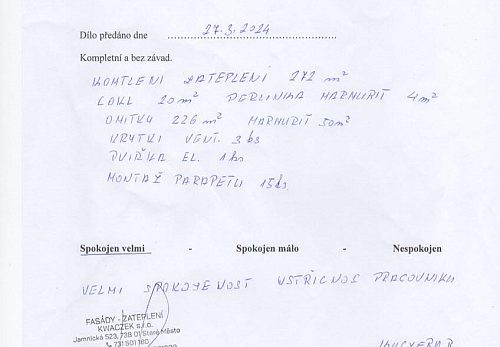 Dílo předáno dne 27.3.2024
Kompletní a bez závad.
KOMTLENI ZATEPLENÍ 272 m²
COKL 20 m² PERLINKA MARMURIT 4 m²
OMITKU 226 m² MARMURIT 50 m²
KRYTKI VENT. 3 ks
DVIŘKA EL. 1 ks
MONTAŽ PARAPETU 15 ks
Spokojen velmi - Spokojen málo - Nespokojen
VELMI SPOKOJENOST VSTŘICNOS PRACOVNIKU
FASÁDY - ZATEPLENÍ
KWACZEK s.r.o.
Jamnická 523, 738 01 Staré Město
731 501 160